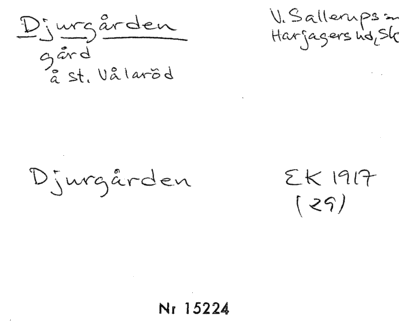 Djurgården
gård
å St. Vålaröd
V. Sallerups sn
Harjagers hd, Sk
Djurgården
EK 1917
(29)
Nr 15224